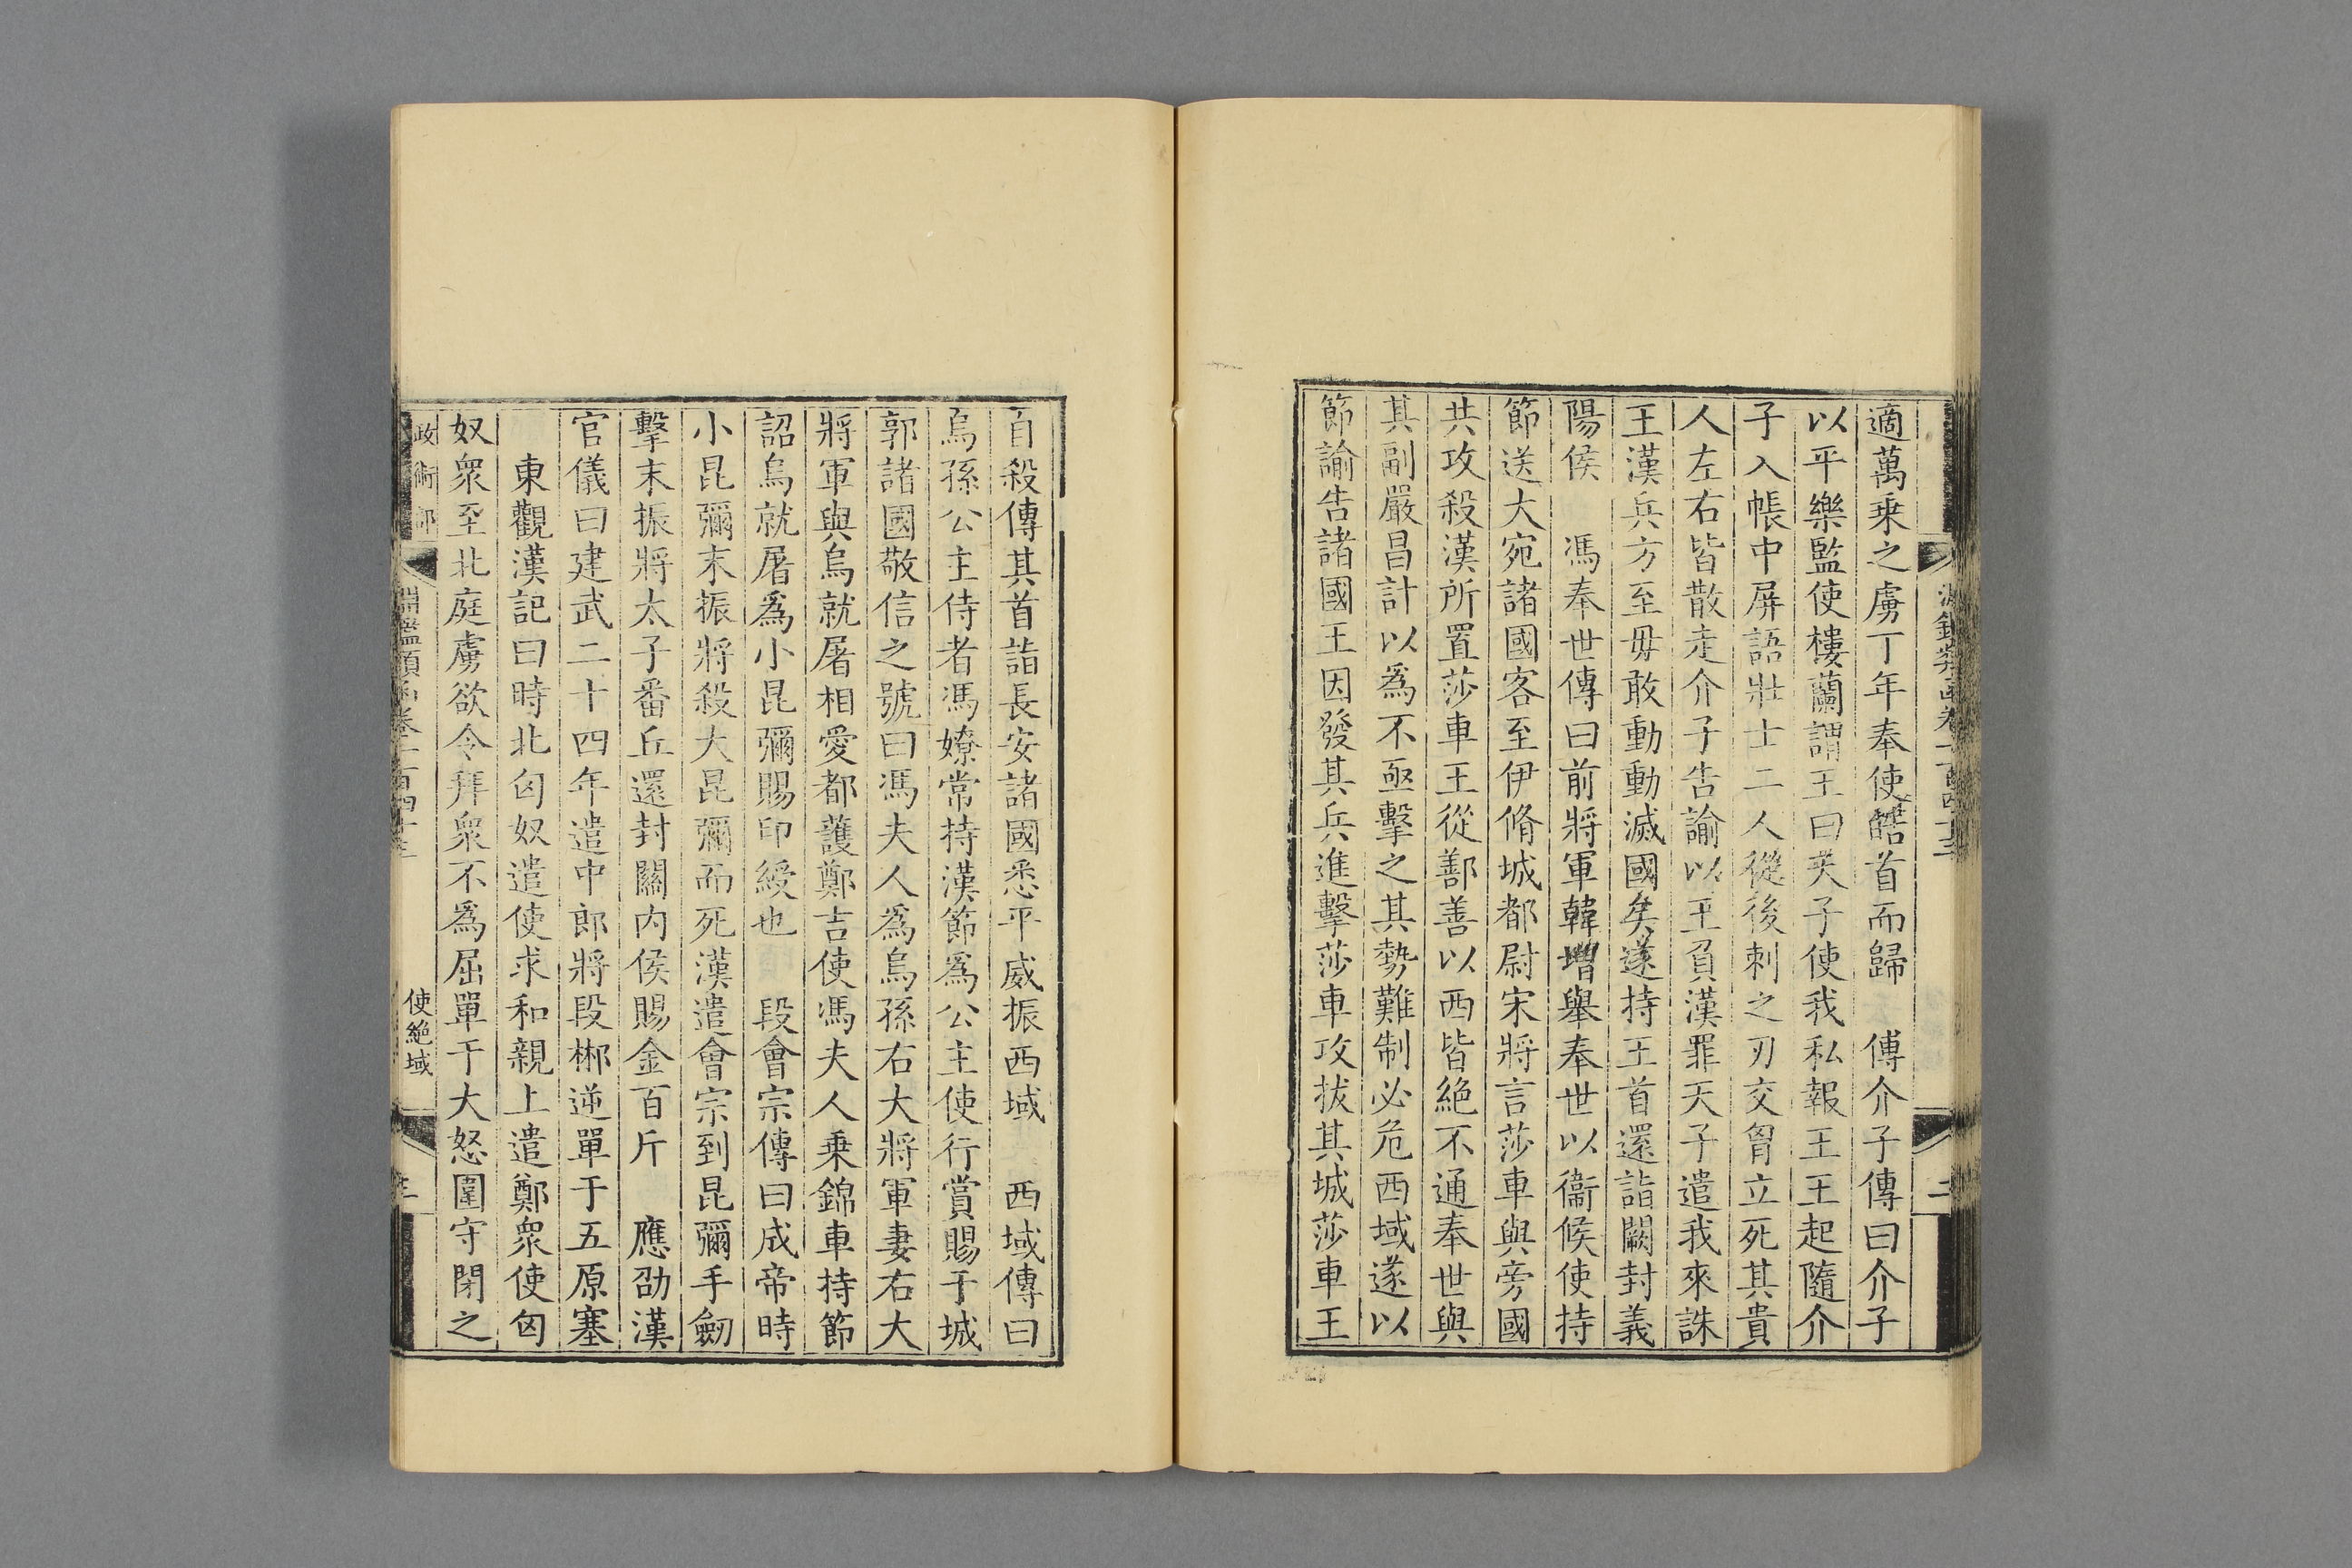 適萬乘之虜丁年奉使皓首而歸　傅介子傳曰介子
以平樂監使樓蘭謂王曰天子使我私報王王起隨介
子入帳中屏語壯士二人從後刺之刃交胷立死其貴
人左右皆散走介子告諭以王負漢罪天子遣我來誅
王漢兵方至毋敢動動滅國矣遂持王首還詣闕封義
陽侯　馮奉世傳曰前將軍韓增舉奉世以衞候使持
節送大宛諸國客至伊脩城都尉宋將言莎車與旁國
共攻殺漢所置莎車王從鄯善以西皆絕不通奉世與
其副嚴昌計以爲不亟擊之其勢難制必危西域遂以
節諭告諸國王因發其兵進擊莎車攻拔其城莎車王
二
自殺傳其首詣長安諸國悉平威振西域　西域傳曰
烏孫公主侍者馮嫽常持漢節爲公主使行賞賜于城
郭諸國敬信之號曰馮夫人爲烏孫右大將軍妻右大
將軍與烏就屠相愛都護鄭吉使馮夫人乗錦車持節
詔烏就屠爲小昆彌賜印綬也　段會宗傳曰成帝時
小昆彌末振將殺大昆彌而死漢遣會宗到昆彌手劒
擊末振將太子番丘還封關内侯賜金百斤　應劭漢
官儀曰建武二十四年遣中郎將段郴逆單于五原塞
東觀漢記曰時北匈奴遣使求和親上遣鄭衆使匈
奴衆至北庭虜欲令拜衆不爲屈單于大怒圍守閉之
政術部　淵鑑類函卷一百四十三　使絕域